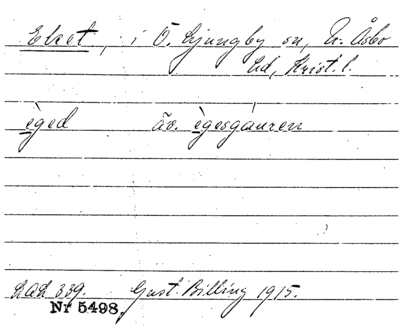 Eket, i Ö. Ljungby sn, N. Åsbo
hd, Krist. l.
èged äv. ègesgåuren
Lad 339. Gust. Billing 1915.
Nr 5498.